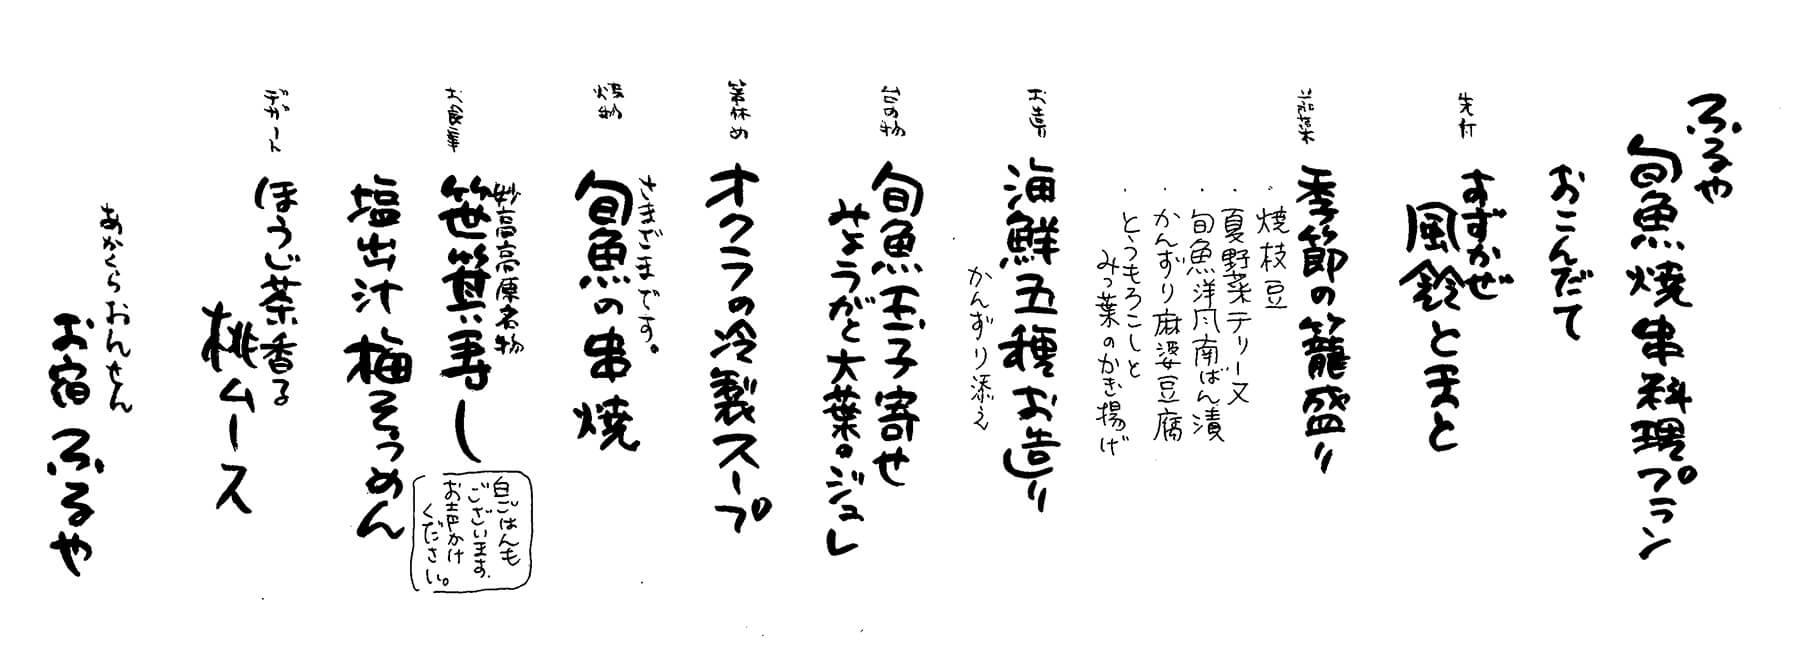 ふるや
旬魚焼串料理プラン
おこんだて
先付
すずかぜ
風鈴とまと
前菜
季節の籠盛り
・焼枝豆
・夏野菜テリーヌ
・旬魚洋風南ばん漬
・かんずり麻婆豆腐
・とうもろこしと
みつ葉のかき揚げ
お造り
海鮮五種お造り
かんずり添え
台の物
旬魚玉子寄せ
みょうがと大葉のジュレ
箸休め
オクラの冷製スープ
焼物
さまざまです。
旬魚の串焼
お食事
妙高高原名物
笹箕寿し
白ごはんも
ございます。
お声かけ
ください。
塩出汁梅そうめん
デザート
ほうじ茶香る
桃ムース
あかくらおんせん
お宿ふるや